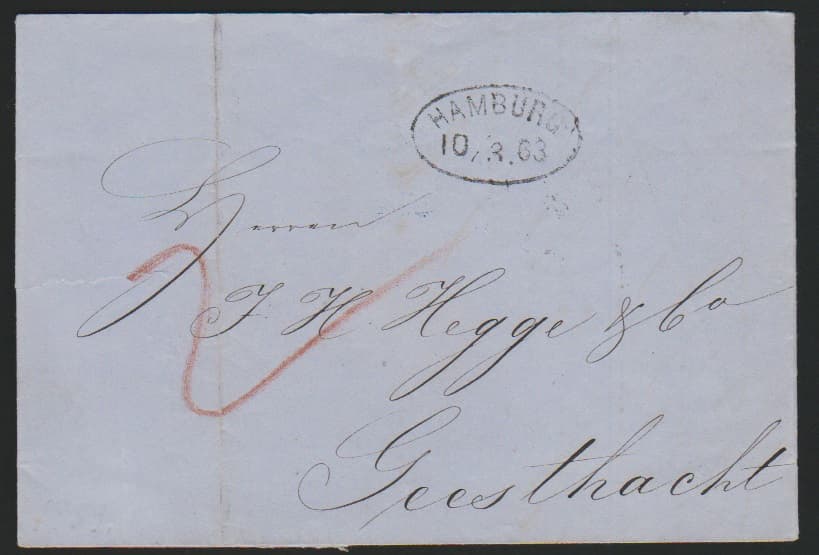 HAMBURG
10/3.63
Herren
J. H. Hegge & Co
Geesthacht
2